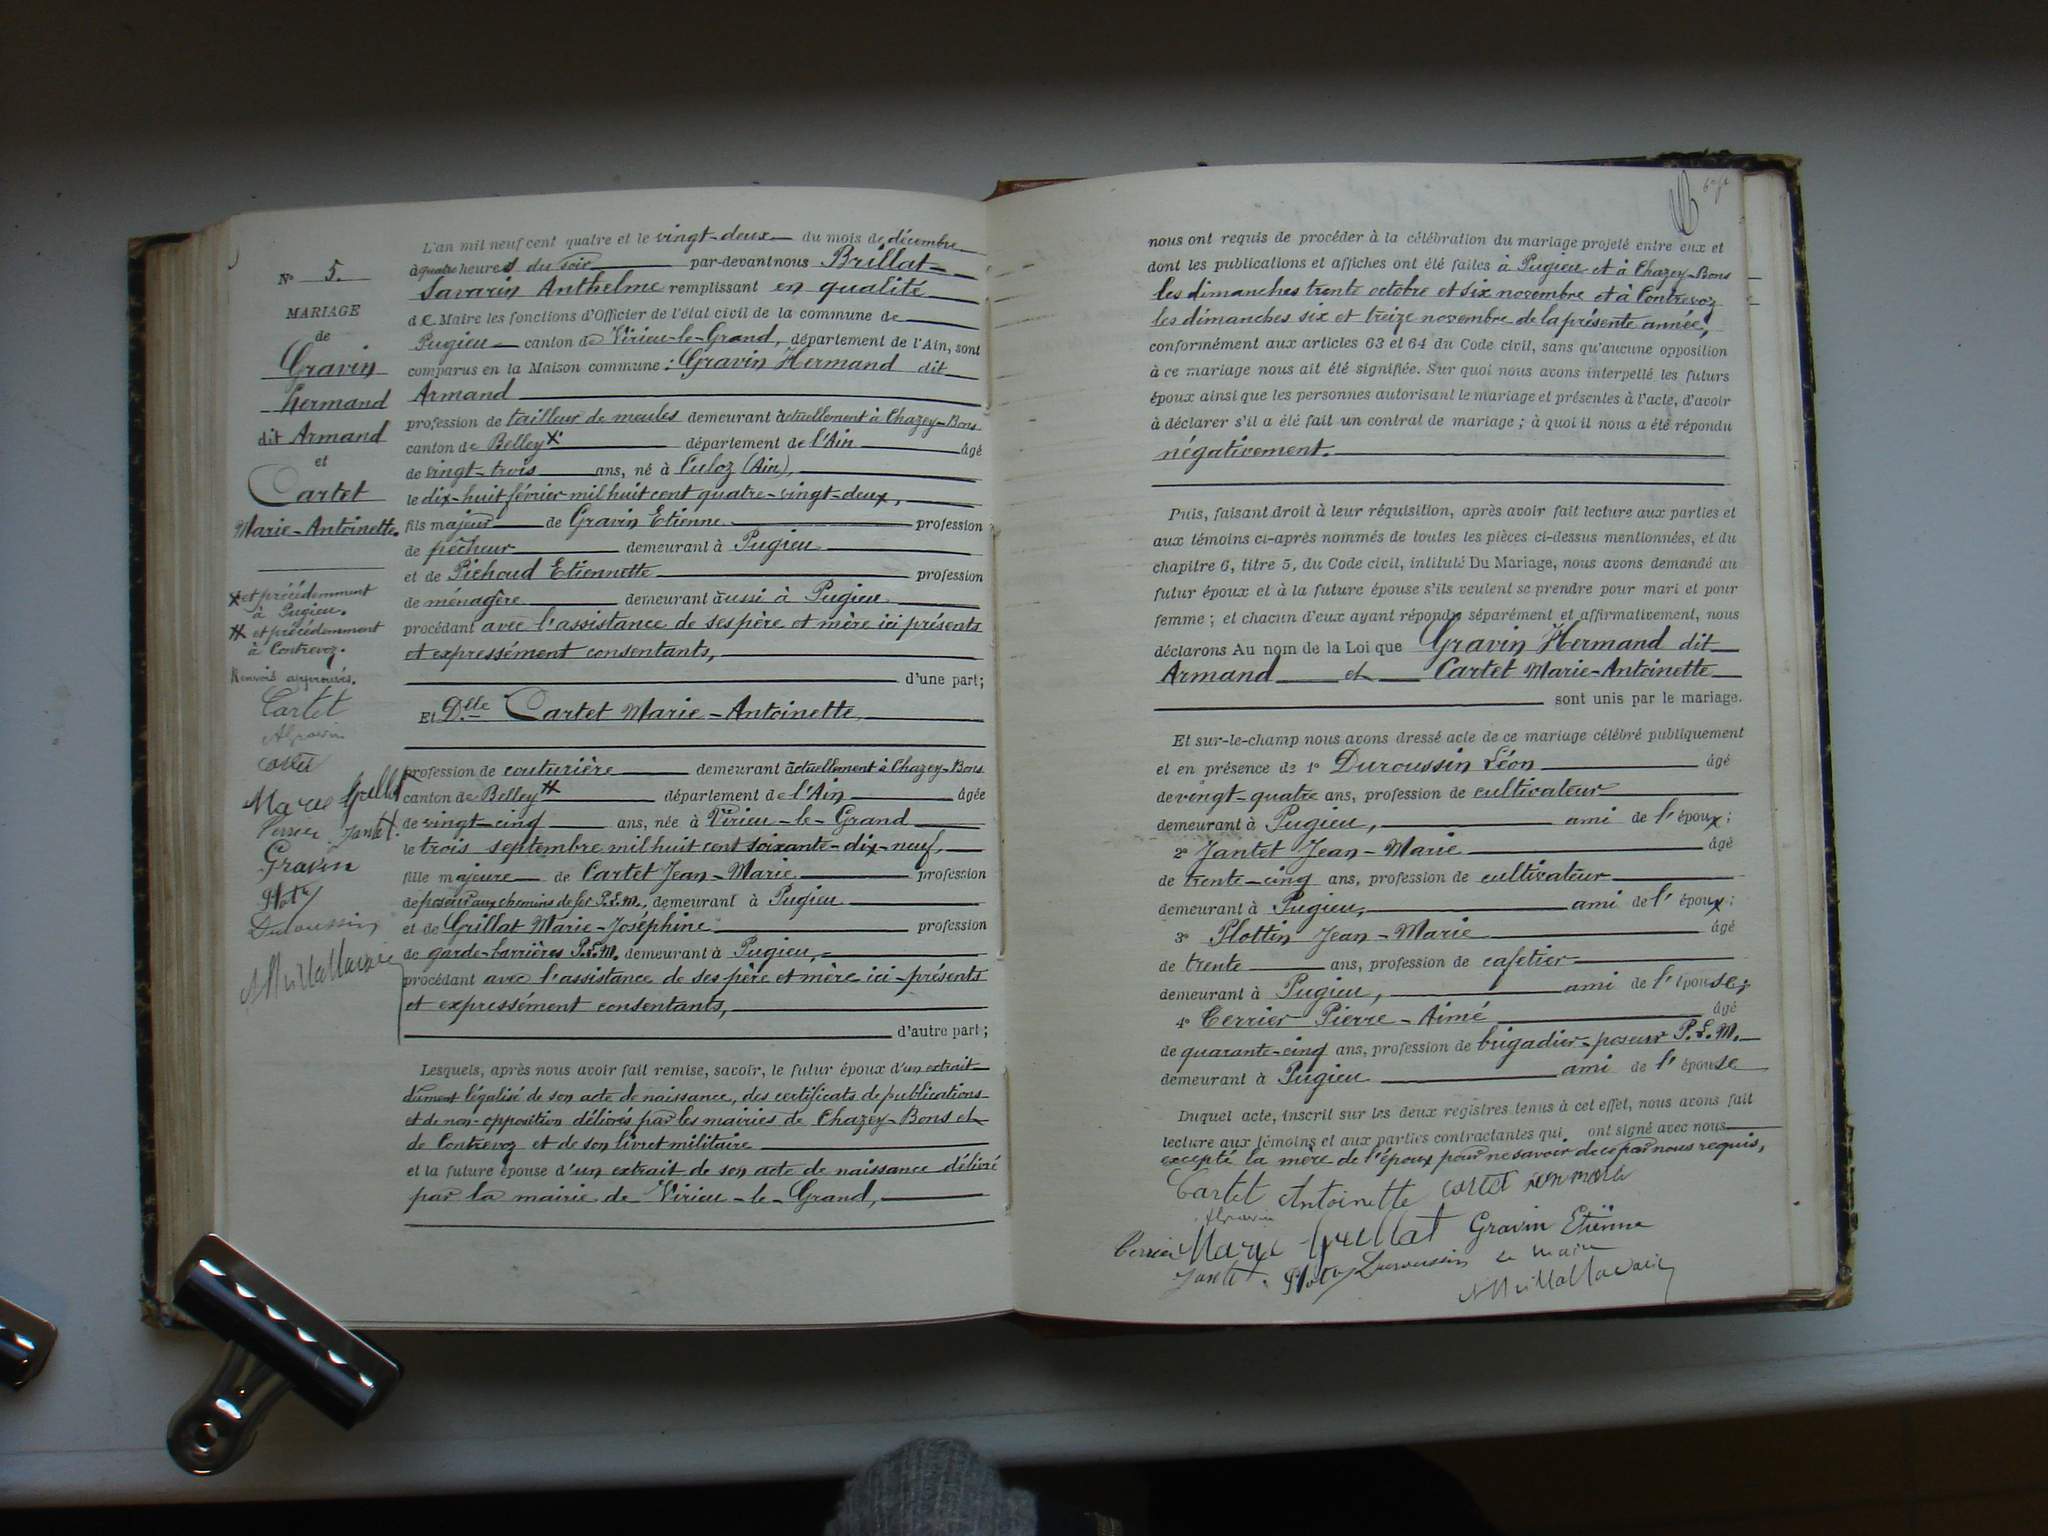 N° 5.
MARIAGE
de
Gravin
Hermand
dit Armand
et
Cartet
Marie-Antoinette.
X et précédemment
à Pugieu.
XX et précédemment
à Contrevoz.
Renvois approuvés.
Cartet
AGravin
Cartet
Marie Grillat
Perrier Jantet
Gravin
Duroussin
L'an mil neuf cent quatre et le vingt-deux du mois de décembre
à quatre heures du soir par-devant nous Brillat-
Savarin Anthelme remplissant en qualité
de Maire les fonctions d'Officier de l'état civil de la commune de
Pugieu canton de Virieu-le-Grand, département de l'Ain, sont
comparus en la Maison commune : Gravin Hermand dit
Armand
profession de tailleur de meules demeurant actuellement à Chazey-Bons
canton de Belley X département de l'Ain âgé
de vingt-trois ans, né à Culoz (Ain),
le dix-huit février mil huit cent quatre-vingt-deux,
fils majeur de Gravin Etienne profession
de pêcheur demeurant à Pugieu
et de Pichoud Etiennette profession
de ménagère demeurant aussi à Pugieu
procédant avec l'assistance de ses père et mère ici présents
et expressément consentants,
d'une part;
Et Dlle Cartet Marie-Antoinette
profession de couturière demeurant actuellement à Chazey-Bons
canton de Belley XX département de l'Ain âgée
de vingt-cinq ans, née à Virieu-le-Grand
le trois septembre mil huit cent soixante-dix-neuf,
fille majeure de Cartet Jean-Marie profession
de poseur aux chemins de fer P.L.M., demeurant à Pugieu
et de Grillat Marie-Joséphine profession
de garde-barrières P.L.M. demeurant à Pugieu,
procédant avec l'assistance de ses père et mère ici-présents
et expressément consentants,
d'autre part;
Lesquels, après nous avoir fait remise, savoir, le futur époux d'un extrait
dûment légalisé de son acte de naissance, des certificats de publications
et de non-opposition délivrés par les mairies de Chazey-Bons et
de Contrevoz et de son livret militaire
et la future épouse d'un extrait de son acte de naissance délivré
par la mairie de Virieu-le-Grand,
nous ont requis de procéder à la célébration du mariage projeté entre eux et
dont les publications et affiches ont été faites à Pugieu et à Chazey-Bons
les dimanches trente octobre et six novembre et à Contrevoz
les dimanches six et treize novembre de la présente année,
conformément aux articles 63 et 64 du Code civil, sans qu'aucune opposition
à ce mariage nous ait été signifiée. Sur quoi nous avons interpellé les futurs
époux ainsi que les personnes autorisant le mariage et présentes à l'acte, d'avoir
à déclarer s'il a été fait un contrat de mariage ; à quoi il nous a été répondu
négativement.
Puis, faisant droit à leur réquisition, après avoir fait lecture aux parties et
aux témoins ci-après nommés de toutes les pièces ci-dessus mentionnées, et du
chapitre 6, titre 5, du Code civil, intitulé Du Mariage, nous avons demandé au
futur époux et à la future épouse s'ils veulent se prendre pour mari et pour
femme ; et chacun d'eux ayant répondu séparément et affirmativement, nous
déclarons Au nom de la Loi que Gravin Hermand dit
Armand et Cartet Marie-Antoinette
sont unis par le mariage.
Et sur-le-champ nous avons dressé acte de ce mariage célébré publiquement
et en présence de 1° Duroussin Léon âgé
de vingt-quatre ans, profession de cultivateur
demeurant à Pugieu, ami de l'époux;
2° Jantet Jean-Marie âgé
de trente-cinq ans, profession de cultivateur
demeurant à Pugieu, ami de l'époux;
3° Plottin Jean-Marie âgé
de trente ans, profession de cafetier
demeurant à Pugieu, ami de l'épouse;
4° Cerrier Pierre-Aimé âgé
de quarante-cinq ans, profession de brigadier-poseur P.L.M.
demeurant à Pugieu ami de l'épouse
Duquel acte, inscrit sur les deux registres tenus à cet effet, nous avons fait
lecture aux témoins et aux parties contractantes qui ont signé avec nous
excepté la mère de l'époux pour ne savoir de ce par nous requis,
Cartet Antoinette Cartet Jean marie
AGravin
Cerrier Marie Grillat Gravin Etienne
Jantet. Duroussin le maire
ABrillatSavarin